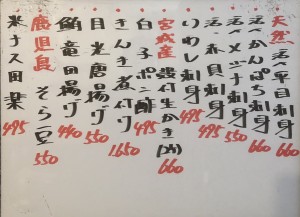 天然 活〆平目刺身 660
活〆かんぱち刺身 660
活〆メジナ刺身 550
赤貝刺身 495
いわし刺身 495
宮城産 殻付生かき(2ヶ) 660
白子ポン酢 495
きんき煮付け 1650
目光唐揚げ 550
鮪竜田揚げ 440
鹿児島 そら豆 550
米ナス田楽 495